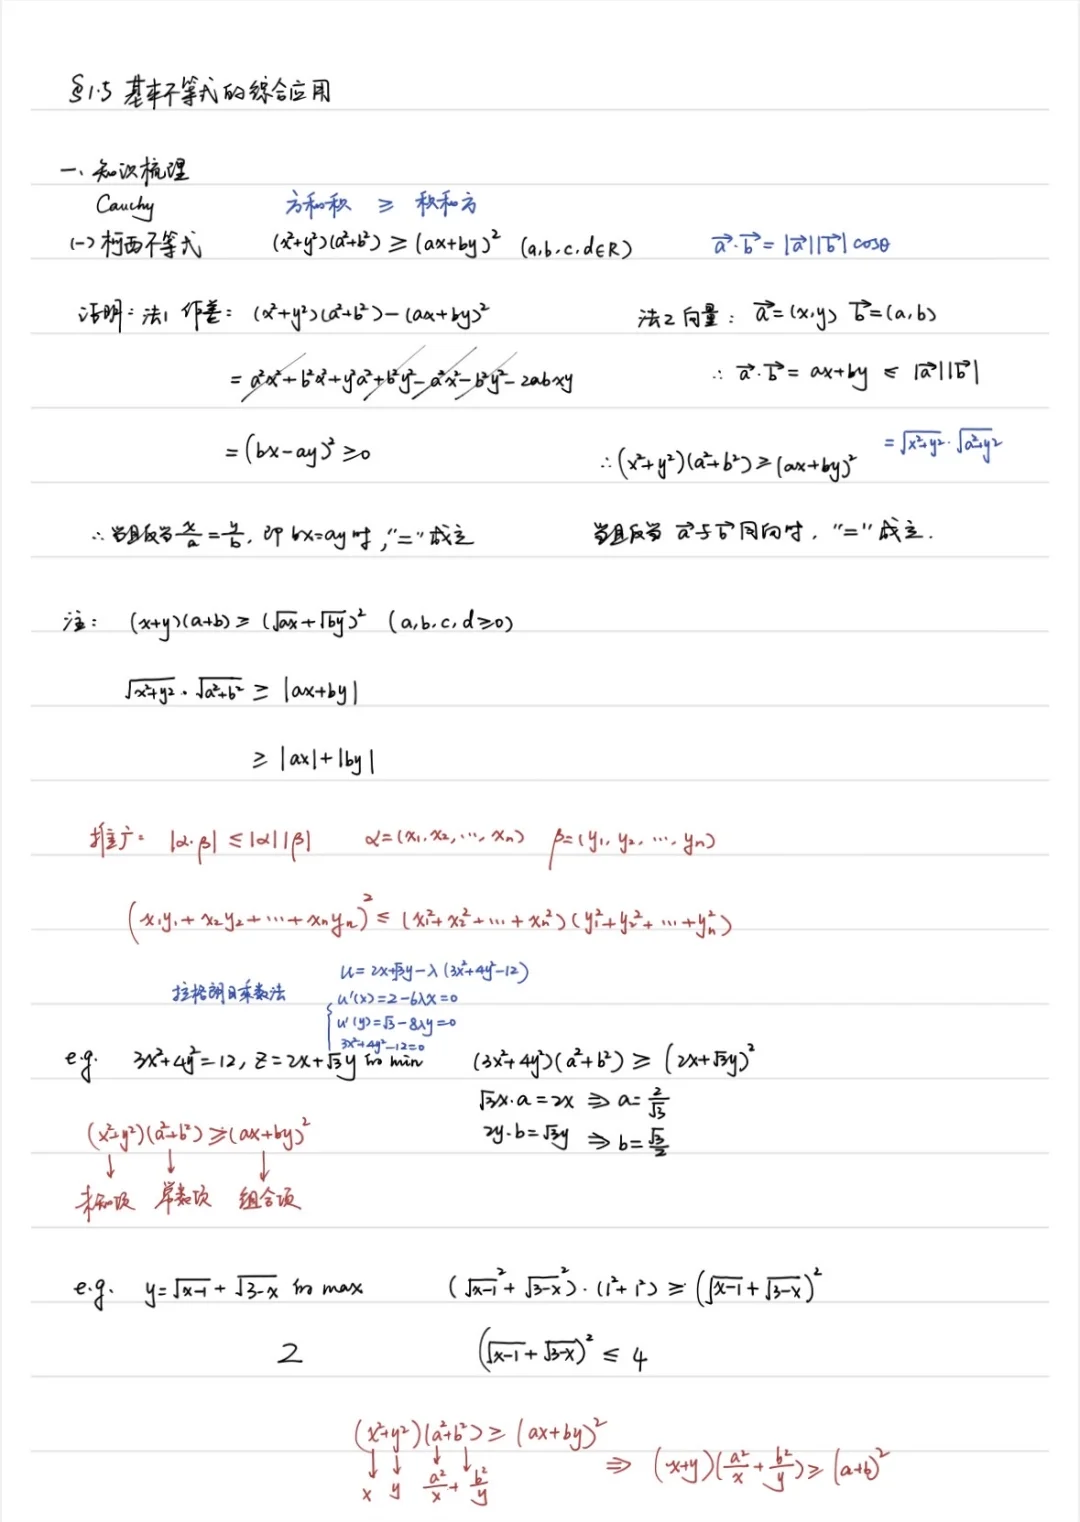 §1.5 基本不等式的综合应用
一、知识梳理
Cauchy 方和积 ≥ 积和方
(一) 柯西不等式 (x²+y²)(a²+b²) ≥ (ax+by)² (a,b,c,d∈R) a⃗·b⃗ = |a⃗||b⃗| cosθ
证明：法1 作差：(x²+y²)(a²+b²)-(ax+by)² 法2 向量：a⃗=(x,y) b⃗=(a,b)
= a²x²+b²x²+y²a²+b²y²-a²x²-b²y²-2abxy ∴ a⃗·b⃗ = ax+by ≤ |a⃗||b⃗|
= √x²+y² · √a²+y²
= (bx-ay)² ≥0 ∴ (x²+y²)(a²+b²) ≥ (ax+by)²
∴ 当且仅当 x/a = y/b, 即 bx=ay 时, "=" 成立 当且仅当 a⃗与b⃗同向时, "=" 成立.
注： (x+y)(a+b) ≥ (√ax+√by)² (a,b,c,d≥0)
√x²+y² · √a²+b² ≥ |ax+by|
≥ |ax|+|by|
推广： |α·β| ≤ |α||β| α=(x₁,x₂,…,xₙ) β=(y₁,y₂,…,yₙ)
(x₁y₁+x₂y₂+…+xₙyₙ)² ≤ (x₁²+x₂²+…+xₙ²)(y₁²+y₂²+…+yₙ²)
拉格朗日乘数法 u=2x+√3y-λ(3x²+4y²-12)
u'(x)=2-6λx=0
u'(y)=√3-8λy=0
3x²+4y²-12=0
e.g. 3x²+4y²=12, z=2x+√3y 的 min (3x²+4y²)(a²+b²) ≥ (2x+√3y)²
√3x·a=2x ⇒ a=2/√3
(x²+y²)(a²+b²) ≥ (ax+by)² 2y·b=√3y ⇒ b=√3/2
↓ ↓ ↓
未知项 常数项 组合项
e.g. y=√x-1 + √3-x 的 max (√x-1²+√3-x²)·(1²+1²) ≥ (√x-1+√3-x)²
2 (√x-1+√3-x)² ≤ 4
(x²+y²)(a²+b²) ≥ (ax+by)²
↓ ↓ ↓ ↓ ⇒ (x+y)(a²/x+b²/y) ≥ (a+b)²
x y a²/x + b²/y